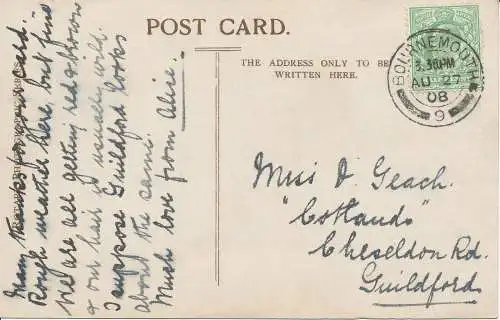 POST CARD.
THE ADDRESS ONLY TO BE
WRITTEN HERE.
BOURNEMOUTH
3.30PM
AU 27
08
9
Many thanks for your card.
Rough weather here, but fine
We are all getting red & brown
& our hair is usually wild.
I suppose Guildford looks
about the same.
Much love from Alice.
Miss D. Geach.
"Cotlands"
Cheseldon Rd.
Guildford.